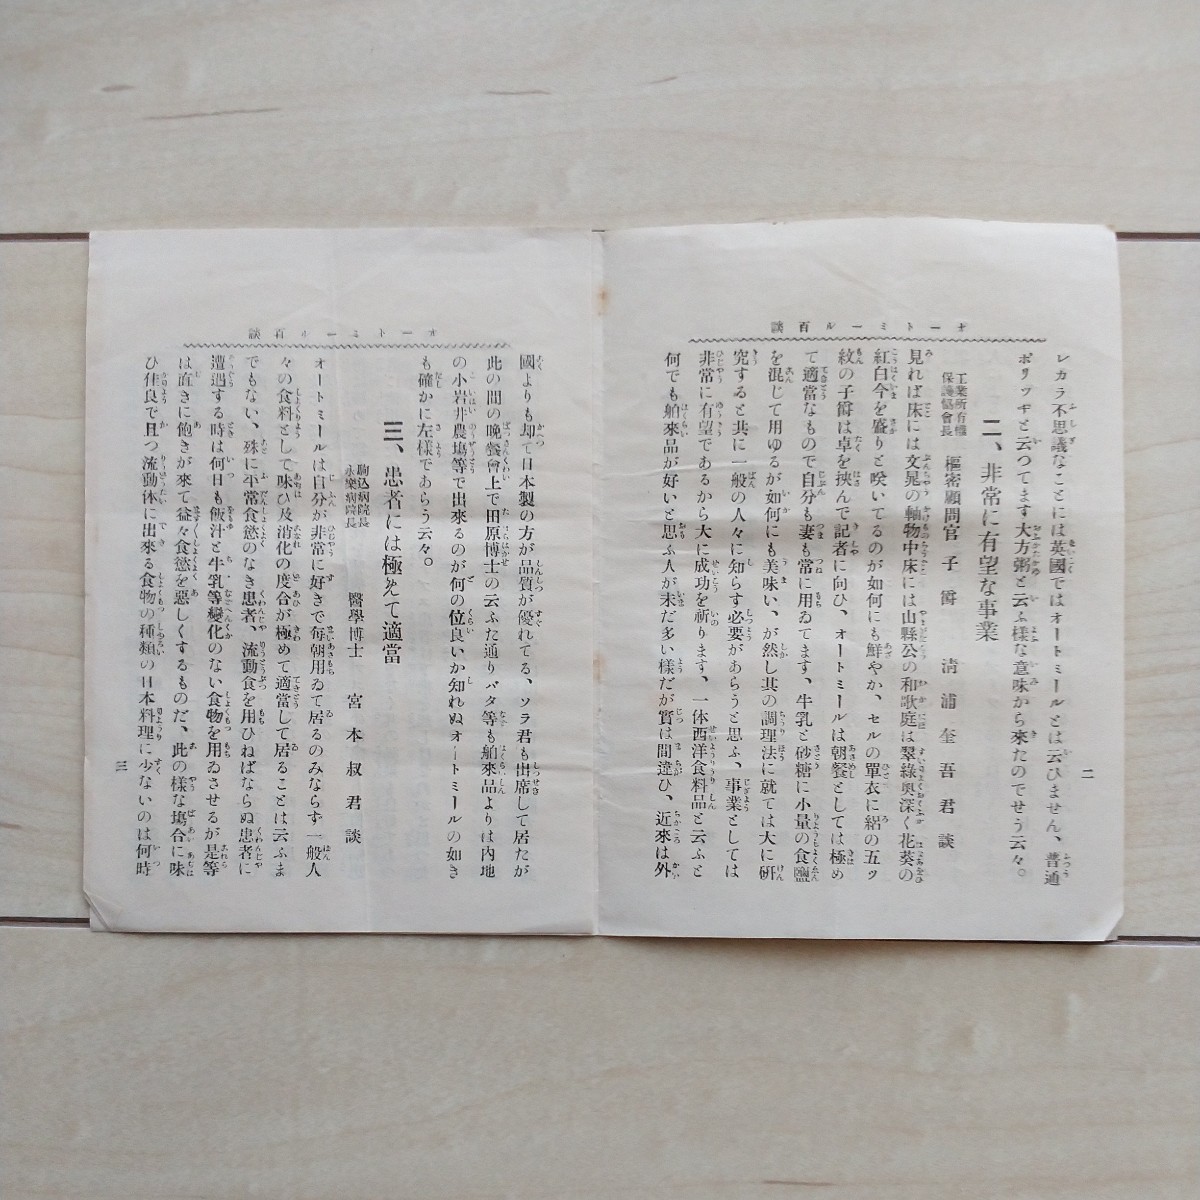 オートミール百談
二
レカラ不思議なことには英國ではオートミールとは云ひません、普通
ポリツヂと云つてます大方粥と云ふ様な意味から來たのでせう云々。
二、非常に有望な事業
工業所有權保護協會長 樞密顧問官 子爵 淸浦奎吾君談
見れば床には文晁の軸物中床には山縣公の和歌庭は翠綠奥深く花葵の
紅白今を盛りと咲いてるのが如何にも鮮やか、セルの單衣に絽の五ツ
紋の子爵は卓を挾んで記者に向ひ、オートミールは朝餐としては極め
て適當なもので自分も妻も常に用ゐてます、牛乳と砂糖に小量の食鹽
を混じて用ゆるが如何にも美味い、が然し其の調理法に就ては大に硏
究すると共に一般の人々に知らす必要があらうと思ふ、事業としては
非常に有望であるから大に成功を祈ります、一体西洋食料品と云ふと
何でも舶來品が好いと思ふ人が未だ多い様だが實は間違ひ、近來は外
オートミール百談
國よりも却て日本製の方が品質が優れてる、ソラ君も出席して居たが
此の間の晩餐會上で田原博士の云ふた通りバタ等も舶來品よりは內地
の小岩井農塲等で出來るのが何の位良いか知れぬオートミールの如き
も確かに左様であらう云々。
三、患者には極めて適當
駒込病院長永樂病院長 醫學博士 宮本叔君談
オートミールは自分が非常に好きで每朝用ゐて居るのみならず一般人
々の食料として味ひ及消化の度合が極めて適當して居ることは云ふま
でもない、殊に平常食慾のなき患者、流動食を用ひねばならぬ患者に
遭遇する時は何日も飯汁と牛乳等變化のない食物を用ゐさせるが是等
は直きに飽きが來て益々食慾を惡しくするものだ、此の樣な塲合に味
ひ佳良で且つ流動体に出來る食物の種類の日本料理に少ないのは何時
三